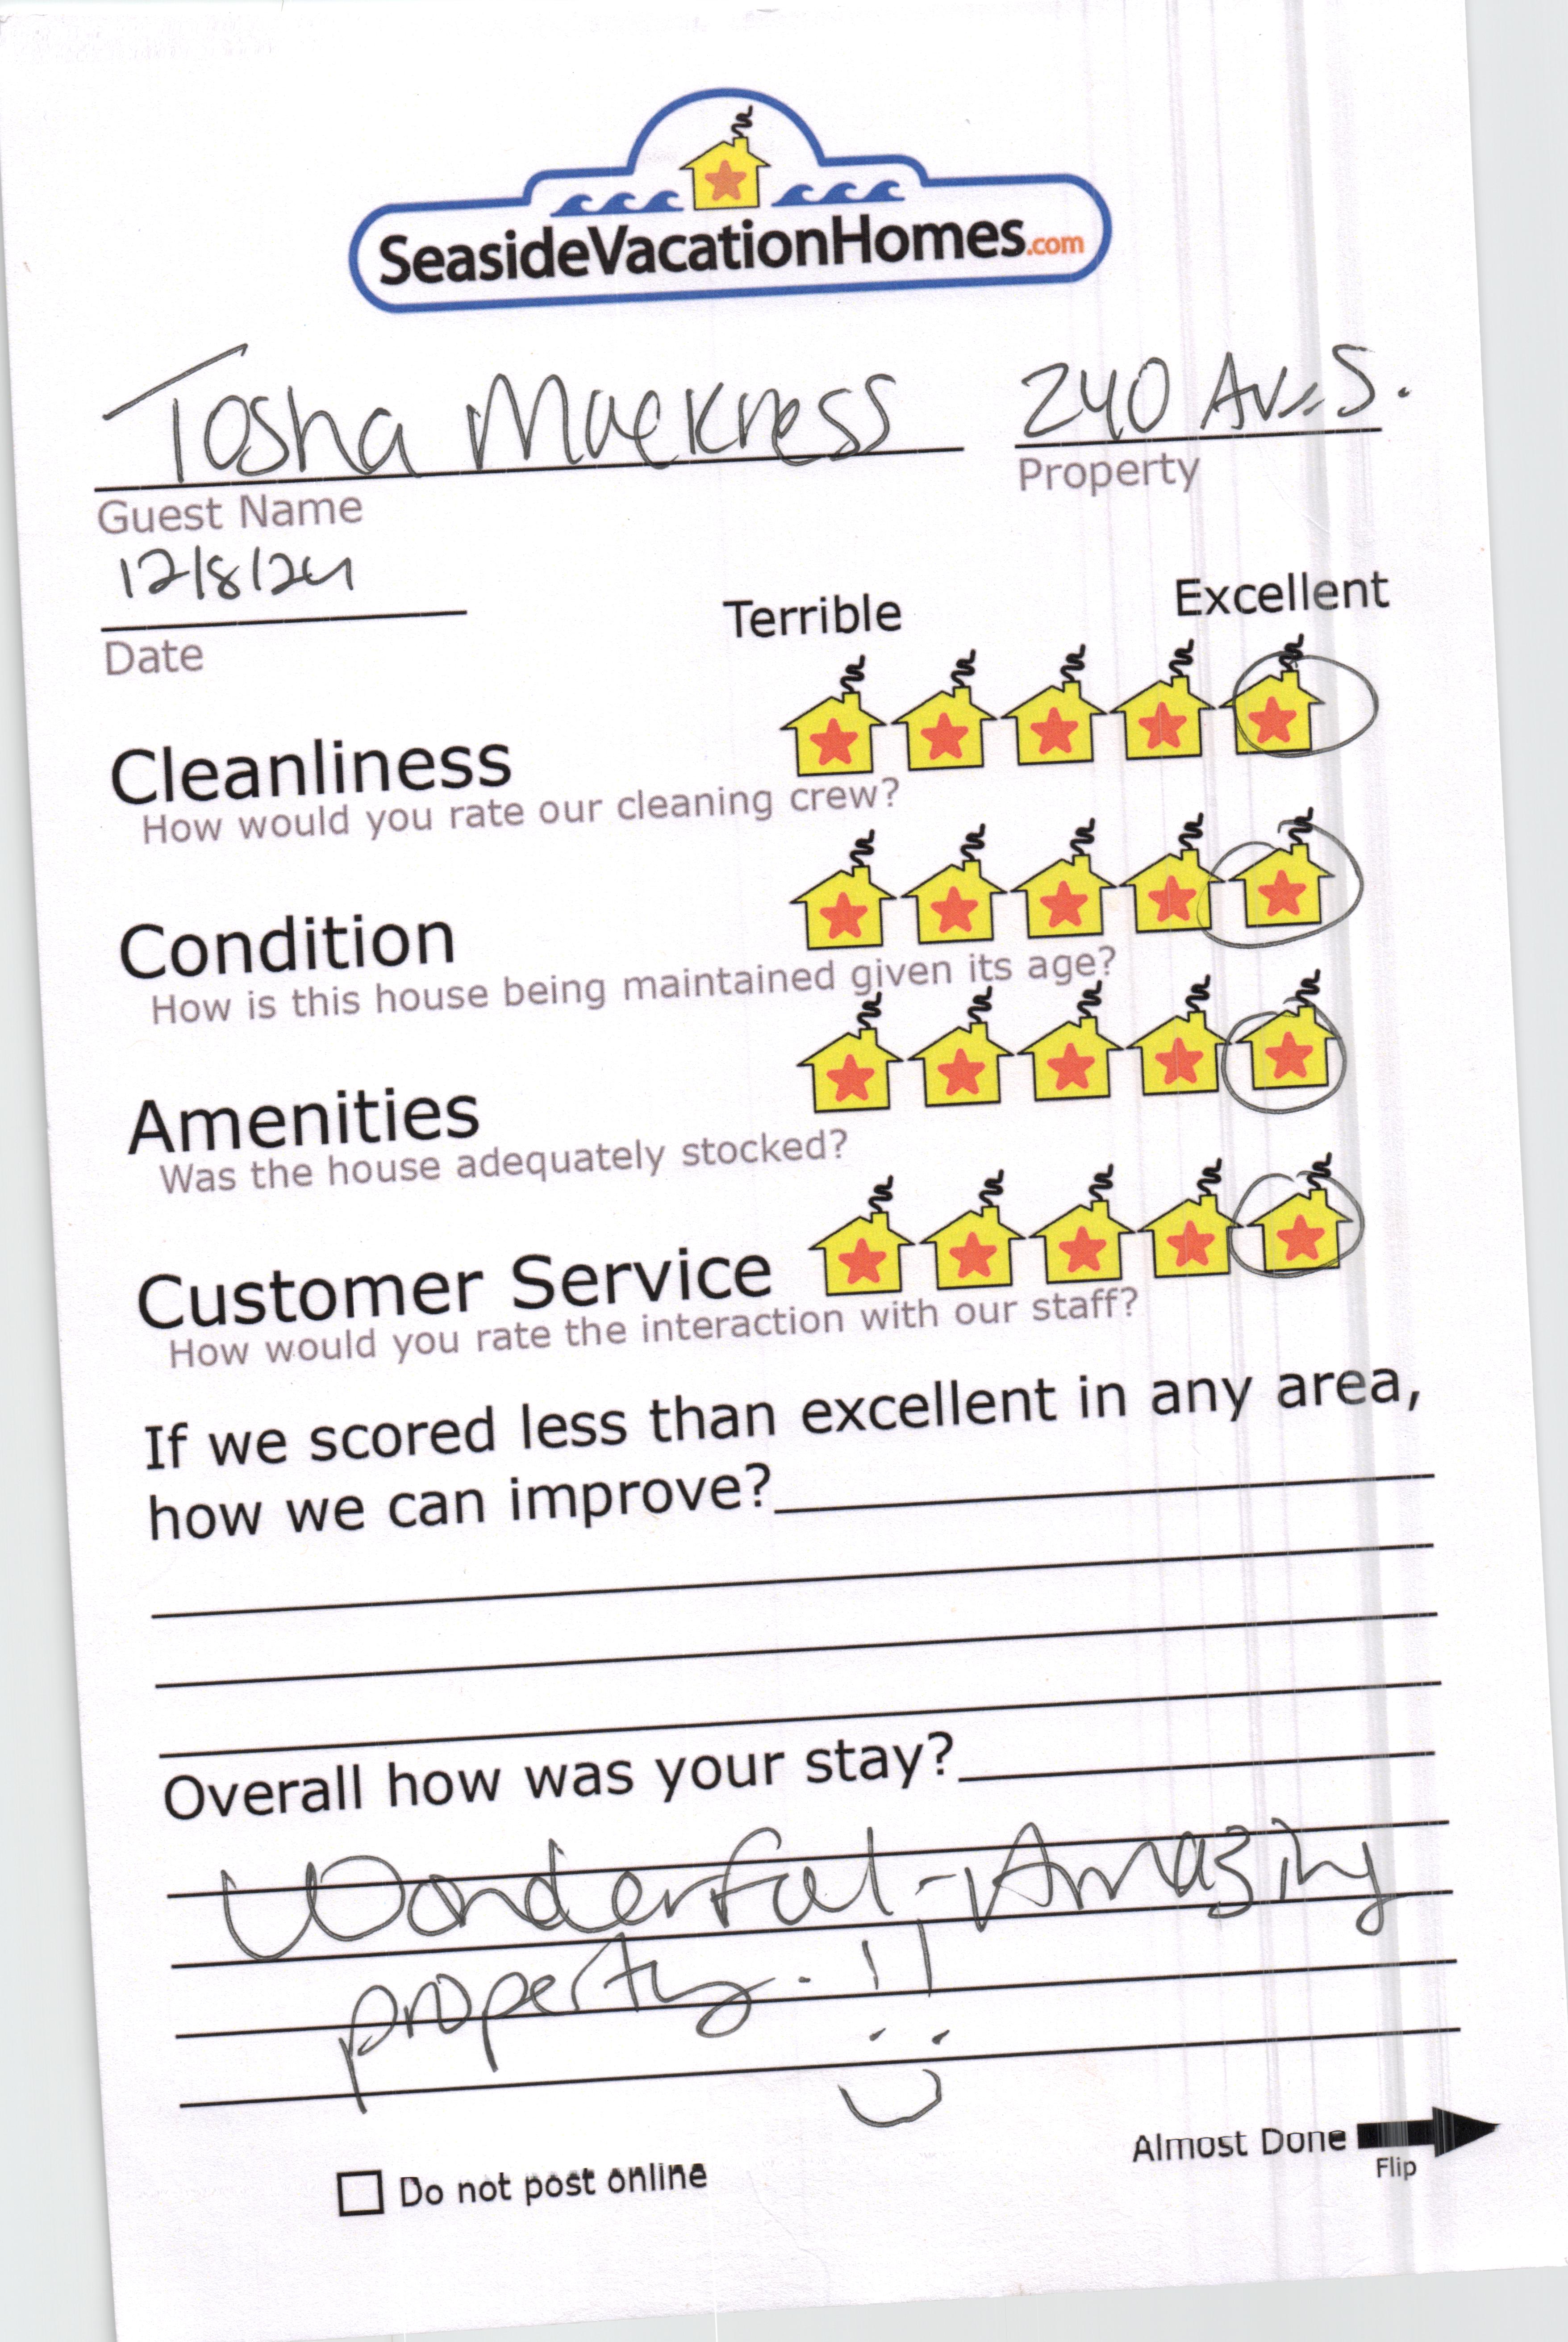 SeasideVacationHomes.com
Tosha Mackress 240 Ave S.
Guest Name Property
12/8/24
Date
Terrible Excellent
Cleanliness
How would you rate our cleaning crew?
Condition
How is this house being maintained given its age?
Amenities
Was the house adequately stocked?
Customer Service
How would you rate the interaction with our staff?
If we scored less than excellent in any area,
how we can improve?
Overall how was your stay?
Wonderful - Amazing
property. !!
Do not post online
Almost Done
Flip